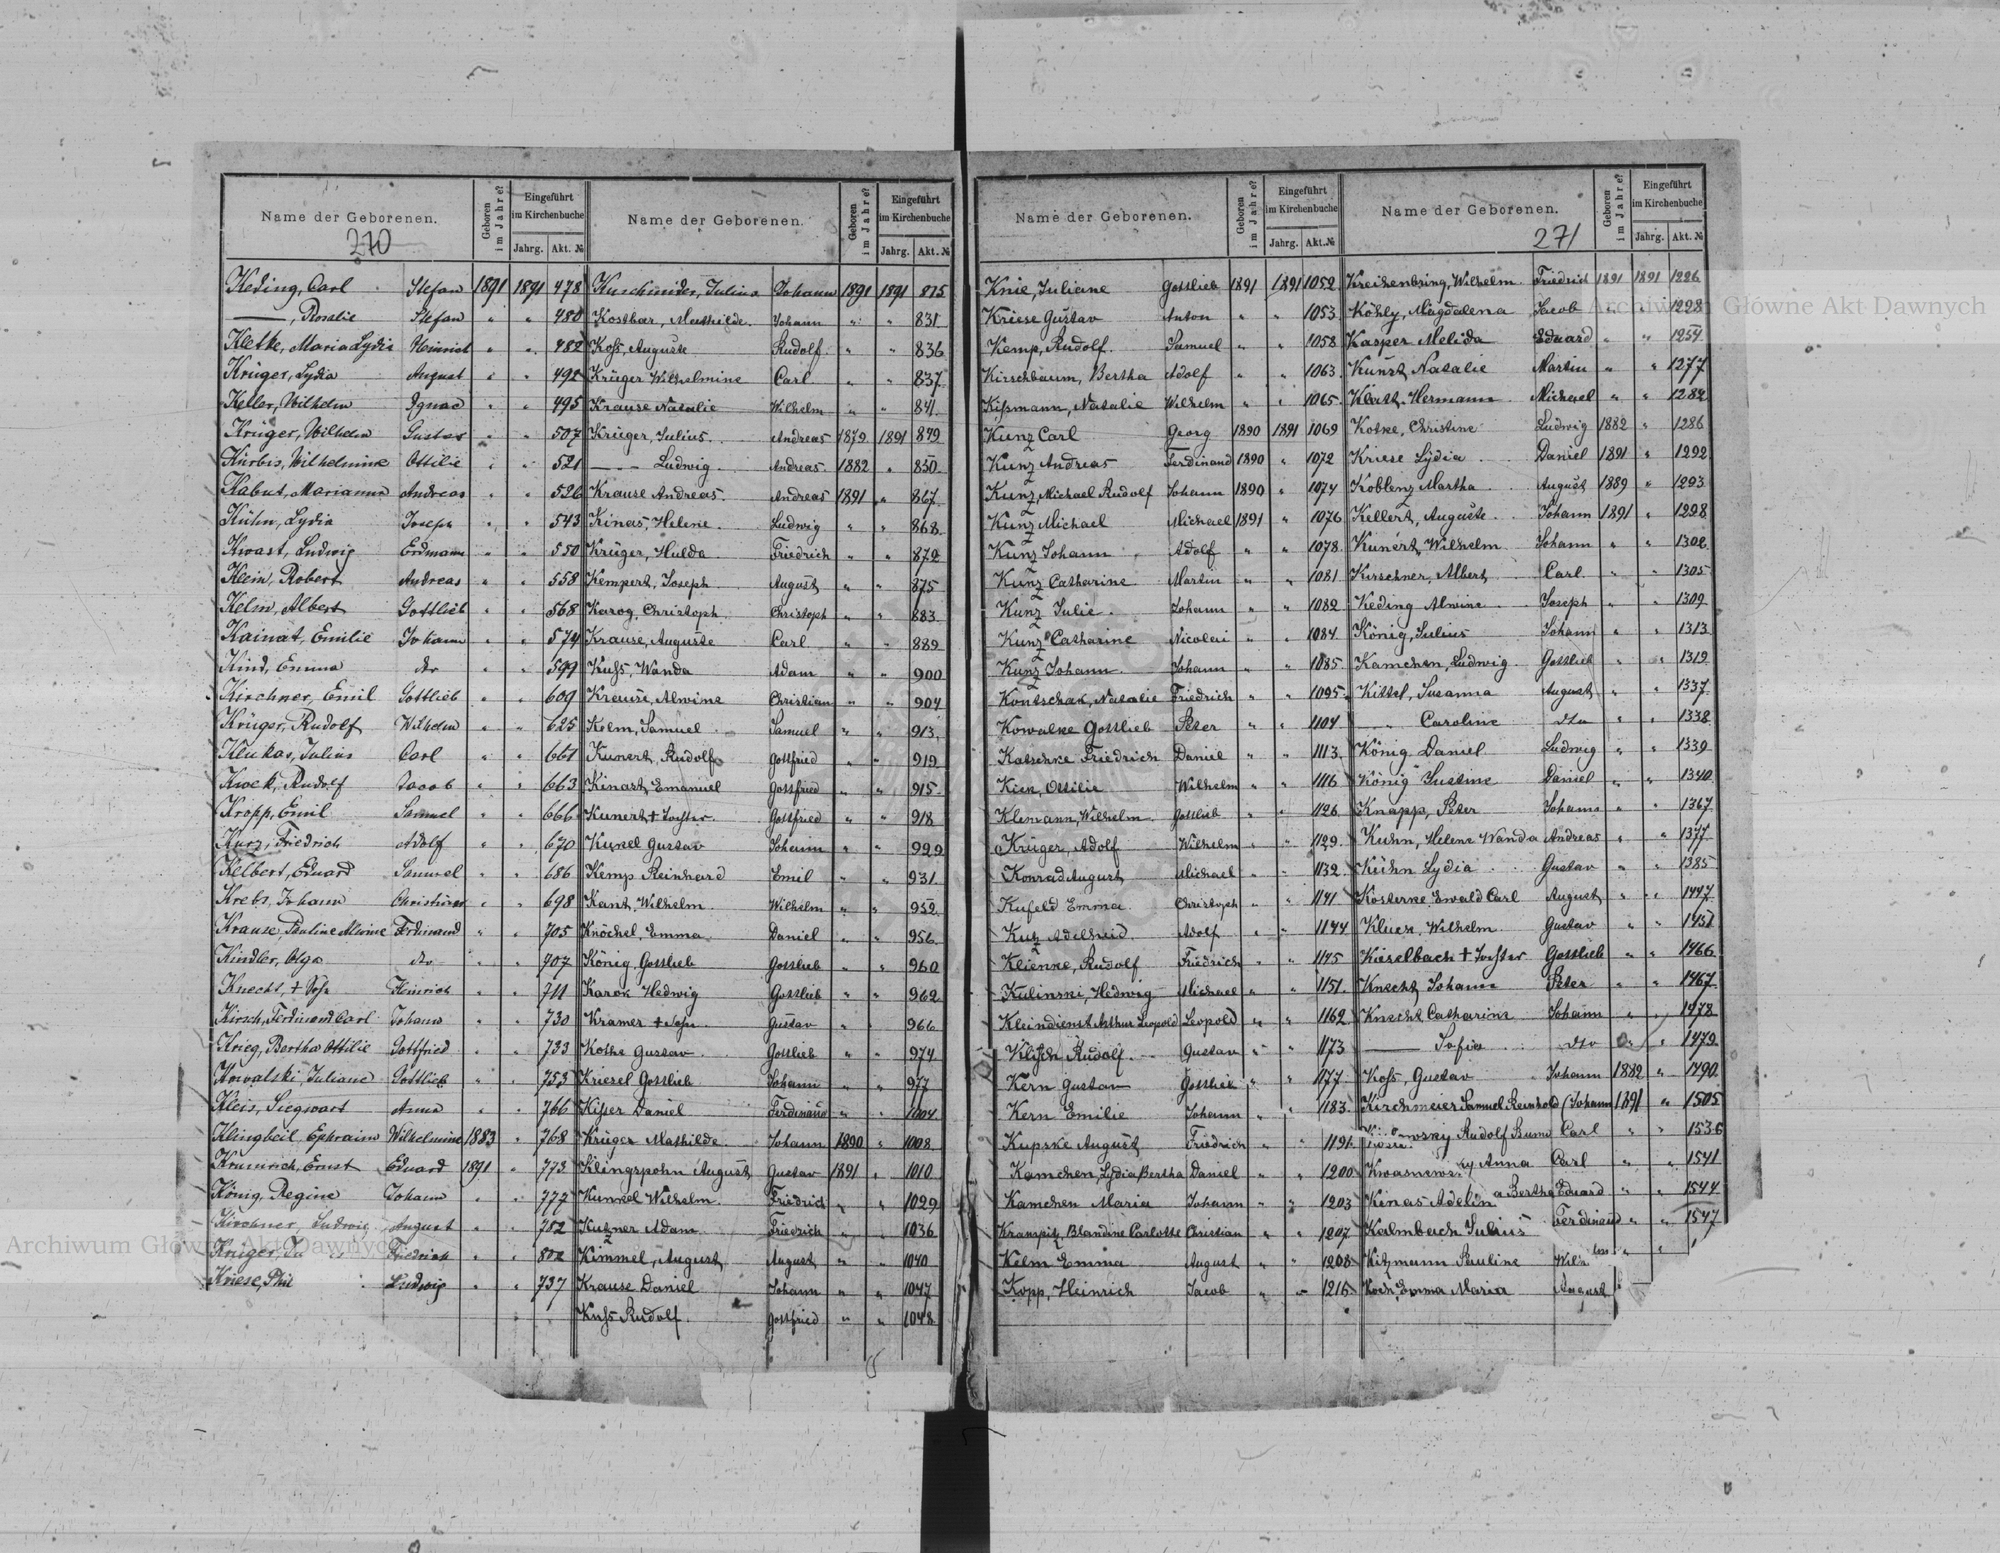 Name der Geborenen. Geboren im Jahre? Eingeführt im Kirchenbuche Jahrg. Akt. №
270
Keding, Carl Stefan 1891 1891 478
——, Rosalie Stefan " " 480
Kletke, Maria Lydia Heinrich " " 482
Krüger, Lydia August " " 492
Keller, Wilhelm Ignac " " 495
Krüger, Wilhelm Gustav " " 507
Kürbis, Wilhelmine Ottilie " " 521
Kabut, Marianna Andreas " " 526
Kühn, Lydia Joseph " " 543
Kwast, Ludwig Erdmann " " 550
Klein, Robert Andreas " " 558
Kelm, Albert Gottlieb " " 568
Kainat, Emilie Johann " " 574
Kind, Emma dto " " 599
Kirchner, Emil Gottlieb " " 609
Krüger, Rudolf Wilhelm " " 625
Klukas, Julius Carl " " 661
Kwek, Rudolf Jacob " " 663
Kropp, Emil Samuel " " 666
Kurz, Friedrich Adolf " " 670
Kelbert, Eduard Samuel " " 686
Krebs, Johann Christian " " 698
Krause, Pauline Alwine Ferdinand " " 705
Kindler, Olga dto " " 707
Knecht, + Sohn Heinrich " " 711
Kirsch, Ferdinand Carl Johann " " 730
Krieg, Bertha Ottilie Gottfried " " 733
Kowalski, Juliane Gottlieb " " 753
Kleis, Siegwart Anna " " 766
Klingbeil, Ephraim Wilhelmine 1883 " 768
Krumrich, Ernst Eduard 1891 " 773
König, Regine Johann " " 777
Kirchner, Ludwig August " " 782
Krüger, Friedrich " " 802
Kriese, Phil Ludwig " " 737
Name der Geborenen. Geboren im Jahre? Eingeführt im Kirchenbuche Jahrg. Akt. №
Kuschmider, Julius Johann 1891 1891 815
Kostbar, Mathilde. Johann " " 831
Koß, Auguste Rudolf " " 836
Krüger Wilhelmine Carl " " 837
Krause Natalie Wilhelm " " 841
Krüger, Julius. Andreas 1879 1891 849
—— Ludwig Andreas 1882 " 850
Krause Andreas. Andreas 1891 " 867
Kinas, Helene. Ludwig " " 868
Krüger, Hulda Friedrich " " 872
Kempert, Joseph August " " 875
Karog, Christoph Christoph " " 883
Krause, Auguste Carl " " 889
Kuß, Wanda Adam " " 900
Krause, Alwine Christian " " 904
Kelm, Samuel Samuel " " 913
Kunert, Rudolf Gottfried " " 919
Kinart, Emanuel Gottfried " " 915
Kunert + Tochter Gottfried " " 918
Kunkel Gustav Johann " " 922
Kemp Reinhard Emil " " 931
Kant, Wilhelm Wilhelm " " 952
Knöchel, Emma Daniel " " 956
König, Gottlieb Gottlieb " " 960
Karok Hedwig Gottlieb " " 962
Kramer + Sohn Gustav " " 966
Kothe Gustav Gottlieb " " 974
Kriesel Gottlieb Johann " " 977
Kißer Daniel Ferdinand " " 1004
Krüger Mathilde Johann 1890 " 1008
Klingspohn August Gustav 1891 " 1010
Kunkel Wilhelm Friedrich " " 1029
Kuzner Adam Friedrich " " 1036
Kimmel, August August " " 1040
Krause Daniel Johann " " 1047
Kuß Rudolf. Gottfried " " 1048
Name der Geborenen. Geboren im Jahre? Eingeführt im Kirchenbuche Jahrg. Akt. №
Knie, Juliane Gottlieb 1891 1891 1052
Kriese Gustav Anton " " 1053
Kemp, Rudolf. Samuel " " 1058
Kirschbaum, Bertha Adolf " " 1063
Kißmann, Natalie Wilhelm " " 1065
Kunz Carl Georg 1890 1891 1069
Kunz Andreas Ferdinand 1890 " 1072
Kunz, Michael Rudolf Johann 1890 " 1074
Kunz Michael Michael 1891 " 1076
Kunz Johann Adolf " " 1078
Kunz Catharine Martin " " 1081
Kunz Julie Johann " " 1082
Kunz Catharine Nicolai " " 1084
Kunz Johann Johann " " 1085
Kontschak, Natalie Friedrich " " 1095
Kowalke Gottlieb Peter " " 1104
Katschke Friedrich Daniel " " 1113
Kick, Ottilie Wilhelm " " 1116
Klemann, Wilhelm Gottlieb " " 1126
Krüger, Adolf Wilhelm " " 1129
Konrad August Michael " " 1132
Kufeld Emma Christoph " " 1141
Kutz Adelheid Adolf " " 1144
Klienke, Rudolf Friedrich " " 1145
Kulinski, Hedwig Michael " " 1151
Kleindienst Arthur Leopold Leopold " " 1162
Klisch Rudolf Gustav " " 1173
Kern Gustav Gottlieb " " 1177
Kern Emilie Johann " " 1183
Kupske August Friedrich " " 1196
Kamchen, Lydia Bertha Daniel " " 1200
Kamchen Maria Johann " " 1203
Krampitz Blandine Carlotte Christian " " 1207
Kelm Emma August " " 1208
Kopp, Heinrich Jacob " " 1215
Name der Geborenen. Geboren im Jahre? Eingeführt im Kirchenbuche Jahrg. Akt. №
271
Kreichenbring, Wilhelm Friedrich 1891 1891 1226
Köhly, Magdalena Jacob " " 1228
Kasper Melida Eduard " " 1254
Kunzt Natalie Martin " " 1277
Klatt Hermann Michael " " 1282
Kotke, Christine Ludwig 1882 " 1286
Kriese Lydia Daniel 1891 " 1292
Koblenz Martha August 1889 " 1293
Kellert, Auguste Johann 1891 " 1298
Kunert Wilhelm Johann " " 1302
Kirschner, Albert Carl " " 1305
Keding Alwine Joseph " " 1309
König, Julius Johann " " 1313
Kamchen, Ludwig Gottlieb " " 1319
Kittel, Susanna August " " 1337
" Caroline dto " " 1338
König Daniel Ludwig " " 1339
König Justine Daniel " " 1340
Knapp, Peter Johann " " 1367
Kuhn, Helene Wanda Andreas " " 1377
Kühn Lydia Gustav " " 1385
Kosterke Ewald Carl August " " 1447
Kluck, Wilhelm Gustav " " 1451
Kieselbach + Tochter Gottlieb " " 1466
Knecht Johann Peter " " 1467
Knecht Catharine Johann " " 1478
—— Sofia dto " " 1479
Koß, Gustav Johann 1882 " 1490
Kirchmeier Samuel Reinhold Johann 1891 " 1505
Rudolf Bruno Carl " " 1536
Anna Carl " " 1541
Kinas Adelina Bertha Eduard " " 1544
Kalmbach Julius Ferdinand " " 1547
Kitzmann Pauline " "
Koch, Emma Maria August
Archiwum Główne Akt Dawnych
Archiwum Główne Akt Dawnych